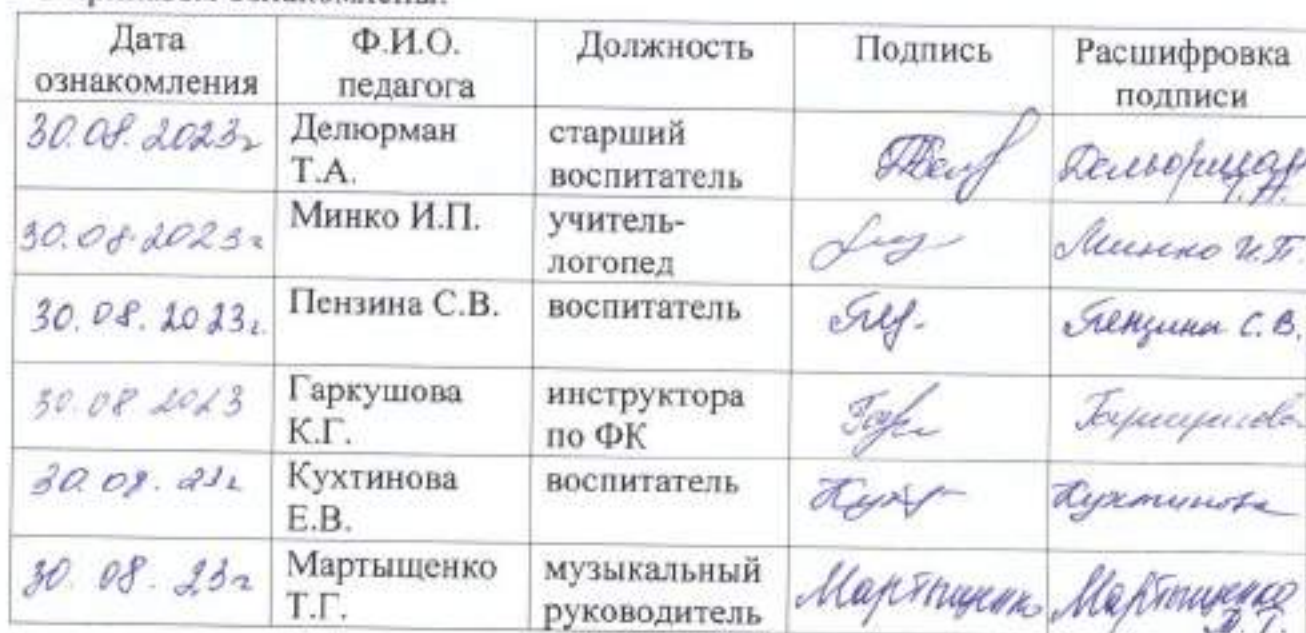 ознакомлены.
Дата ознакомления Ф.И.О. педагога Должность Подпись Расшифровка подписи
30.08.2023г Делюрман Т.А. старший воспитатель Дельюрман Т.А.
30.08.2023г Минко И.П. учитель-логопед Минко И.П.
30.08.2023г. Пензина С.В. воспитатель Пензина С.В.
30.08.2023 Гаркушова К.Г. инструктора по ФК Гаркушова
30.08.23г Кухтинова Е.В. воспитатель Кухтинова
30.08.23г Мартыщенко Т.Г. музыкальный руководитель Мартыщенко Мартыщенко